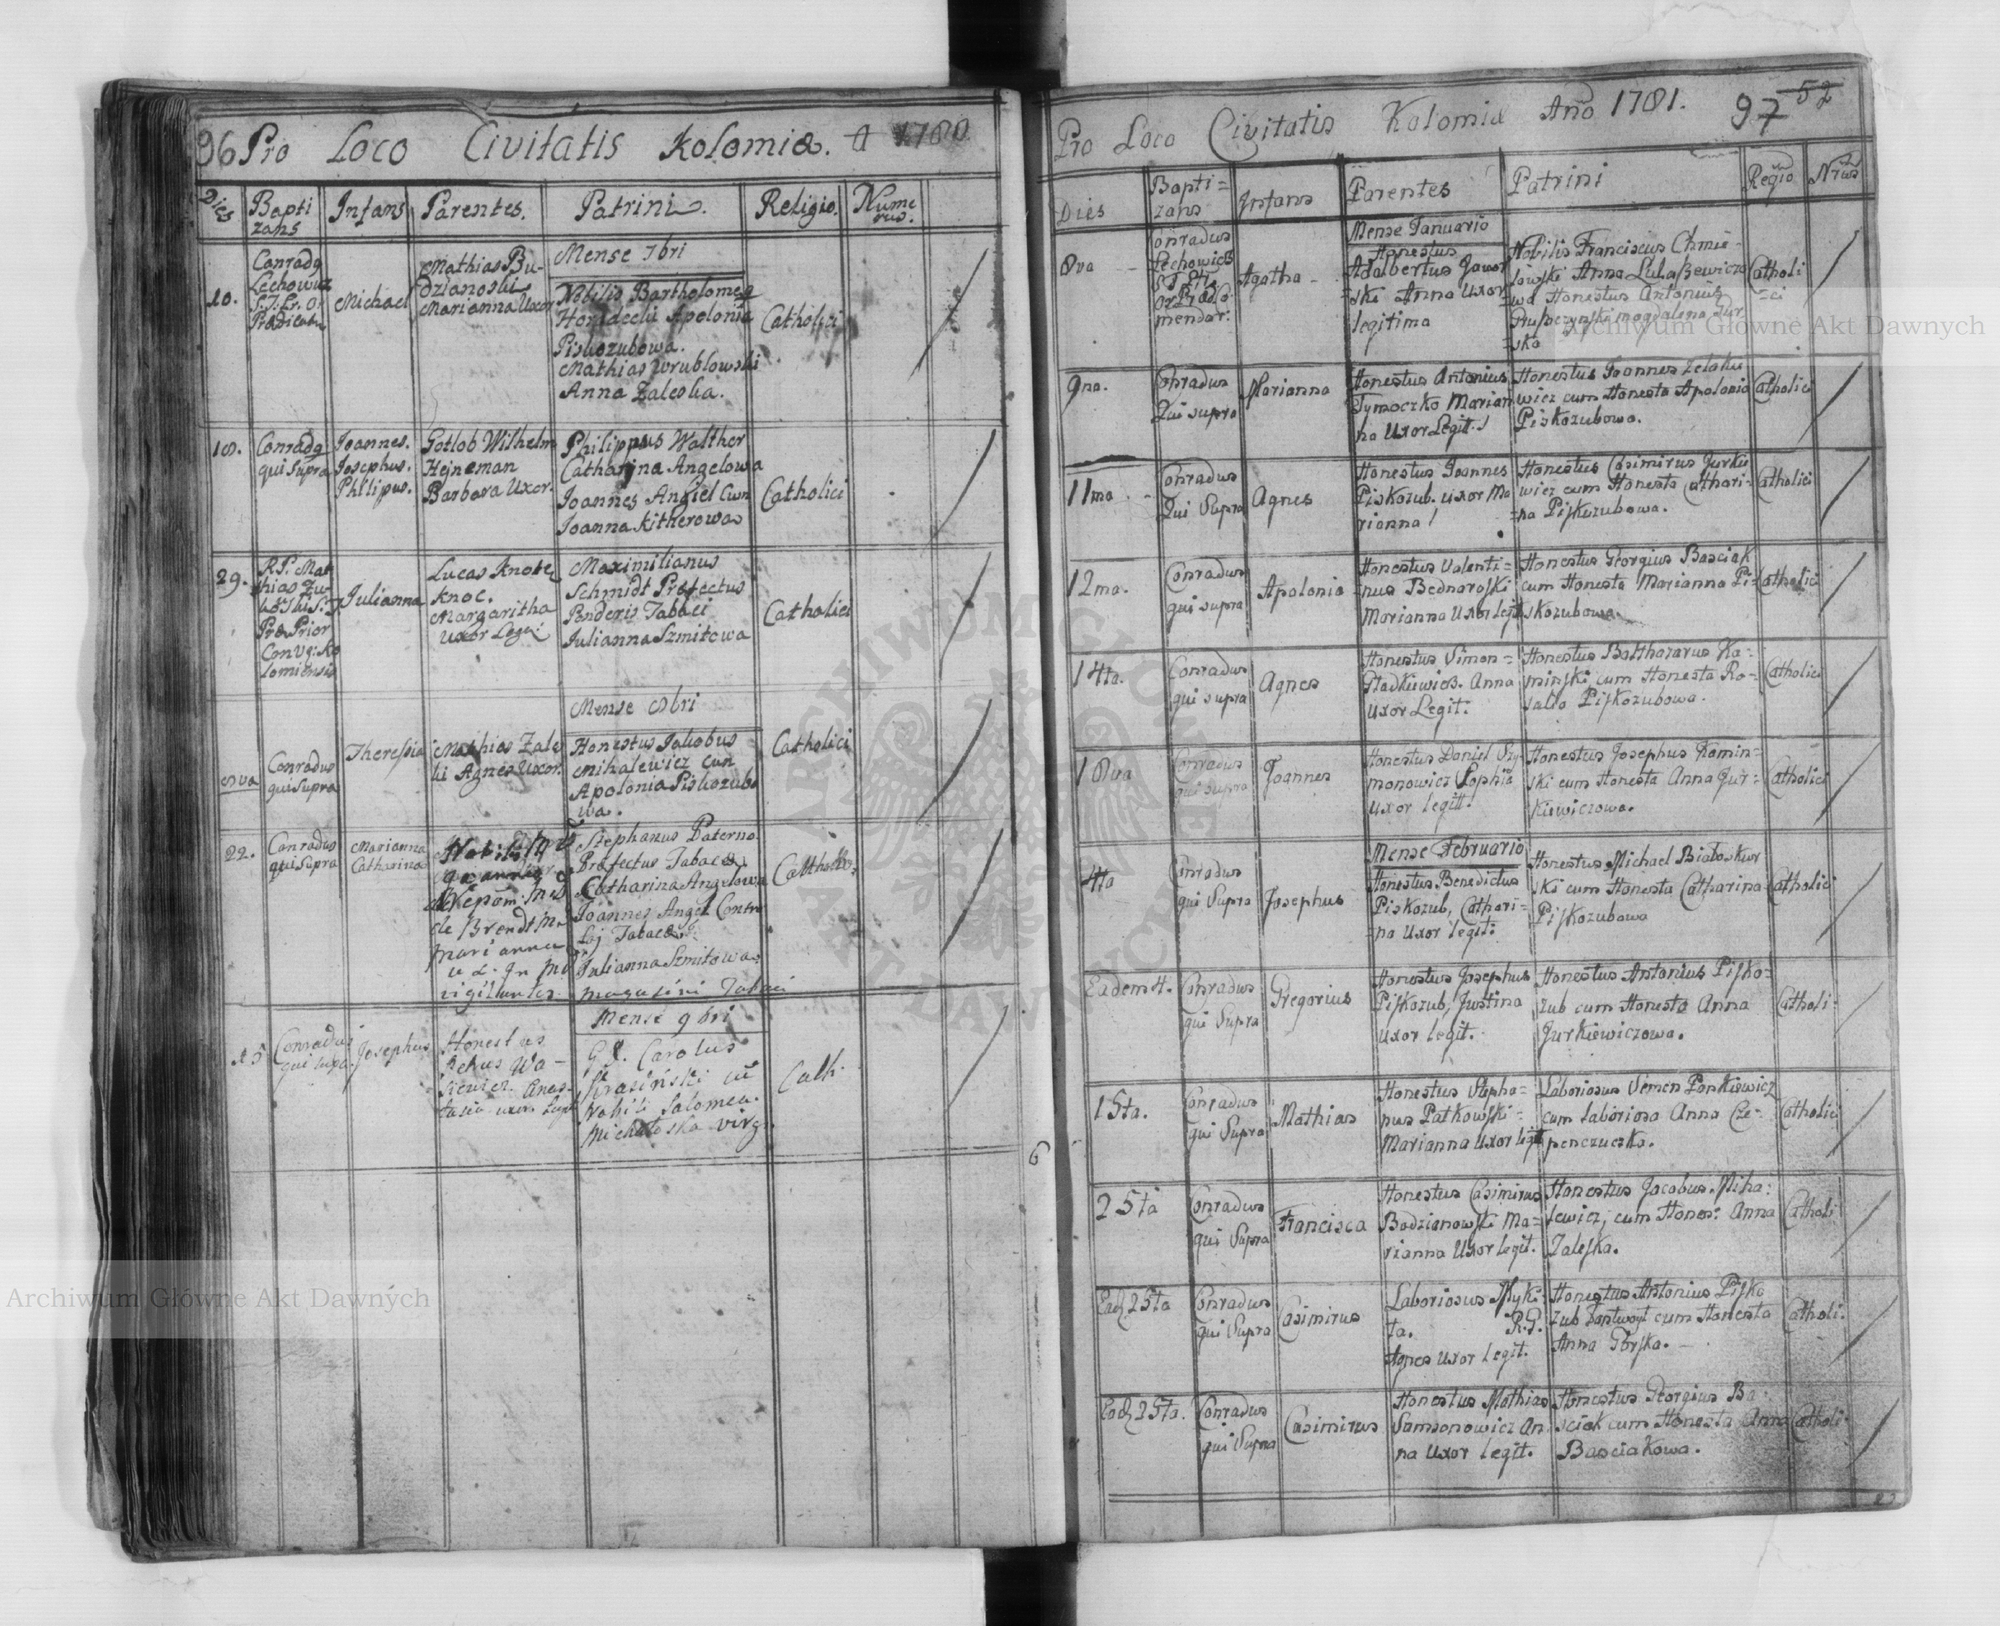 96 Pro Loco Civitatis Kolomiæ. A 1780
Dies
Bapti
zans
Infans
Parentes.
Patrini.
Religio.
Nume
rus.
Mense 7bri
10.
Conradq
Lechowicz
Michael
Mathias Bu-
dzianoski
Marianna Uxor
Nobilis Bartholomeq
Horodecki Apolonia
Piskozubowa.
Mathias Wrublowski
Anna Zaleska.
Catholici
18.
Conradq
qui Supra
Joannes.
Josephus.
Philipus.
Gotlob Wilhelm
Hejneman
Barbara Uxor.
Philippus Walther
Catharina Angelowa
Joannes Angiel Cum
Joanna Kitherowa
Catholici
29.
R.P. Mat
hias
Pro Prior
Conv9: Ko
lomiensis
Julianna
Lucas Knote
Knoc.
Margaritha
Uxor Legi
Maximilianus
Schmidt Præfectus
Ponderis Tabaci
Julianna Szmitowa
Catholici
Mense 8bri
8va
Conradus
qui Supra
Theressia
Mathias Zale
ki Agnes Uxor.
Honestus Jakobus
Mihalewicz Cum
Apolonia Piskozubo
wa.
Catholici
22.
Conradus
qui Supra
Marianna
Catharina
de Brendt
Marianna
Stephanus Paterno
Præfectus Tabacæ
Catharina Angelowa
Joannes Angel Contro
loj Tabacæ
Julianna Szmitowa
magazini Tabaci
Mense 9bri
Conradus
qui supra
Josephus
Honestus
Petrus Wa-
siewicz Anas-
tasia uxor
G.D. Carolus
Krasiński cū
Nobili Salomea
Michałoska virg.
Cath.
6
Pro Loco Civitatis Kolomiæ Año 1781. 97 52
Dies
Bapti=
zans
Infans
Parentes
Patrini
Regio
Nrūs
Mense Januario
8va
Conradus
Lechowicz
mendar:
Agatha
Honestus
Adalbertus Jawor
ski Anna Uxor
legitima
Nobilis Franciscus Chmie=
lowski Anna Lukaszewiczo
wa Honestus Antonius
Pruszczynski Magdalena Zur
=ska
Catholi
=ci
9na.
Conradus
Qui supra
Marianna
Honestus Antonius
Tymoczko Marian
na Uxor Legit.
Honestus Joannes Zelaki
wicz cum Honesta Apolonia
Piskozubowa.
Catholici
11ma
Conradus
Qui Supra
Agnes
Honestus Joannes
Piskozub. uxor Ma
rianna
Honestus Casimirus Jurkie
wicz cum Honesta Cathari-
=na Piskozubowa.
Catholici
12ma.
Conradus
qui supra
Apolonia
Honestus Valenti=
nus Bednarski
Marianna Uxor legit
Honestus Georgius Basciak
cum Honesta Marianna Pi-
skozubowa.
Catholici
14ta.
Conradus
qui supra
Agnes
Honestus Simon=
Gladkiewicz. Anna
Uxor Legit.
Honestus Balthazarus Ka=
minski cum Honesta Ro-
salia Piskozubowa.
Catholici
18va
Conradus
qui supra
Joannes
Honestus Daniel Szy
monowicz Sophia
Uxor legitt.
Honestus Josephus Kamin=
ski cum Honesta Anna Jur-
kiewiczowa.
Catholici
Mense Februario
4ta
Conradus
qui Supra
Josephus
Honestus Benedictus
Piskozub, Cathari=
=na Uxor legit:
Honestus Michael Białoskur
ski cum Honesta Catharina
Piskozubowa
Catholici
Eadem 4.
Conradus
qui Supra
Gregorius
Honestus Josephus
Piskozub, Justina
Uxor legit.
Honestus Antonius Pisko=
zub cum Honesta Anna
Jurkiewiczowa.
Catholi:
15ta.
Conradus
qui Supra
Mathias
Honestus Stepha=
nus Patkowski=
Marianna Uxor legit
Laboriosus Simon Pankiewicz
cum laboriosa Anna Cze=
penczuczka.
Catholici
25ta
Conradus
qui Supra
Francisca
Honestus Casimirus
Bodzianowski Ma=
rianna Uxor legit.
Honestus Jacobus Miha=
lewicz, cum Hones: Anna
Zaleska.
Catholi:
Ead 25ta
Conradus
qui Supra
Casimirus
Laboriosus Myki=
ta. R.G.
Agnes Uxor legit.
Honestus Antonius Pisko
zub cum Honesta
Anna Gorska.
Catholi.
Ead 25ta.
Conradus
qui Supra
Casimirus
Honestus Mathias
Samsonowicz An
na Uxor legit.
Honestus Georgius Ba=
sciak cum Honesta Anna
Basciakowa.
Catholi.
Archiwum Główne Akt Dawnych
Archiwum Główne Akt Dawnych
ARCHIWUM GŁÓWNE AKT DAWNYCH